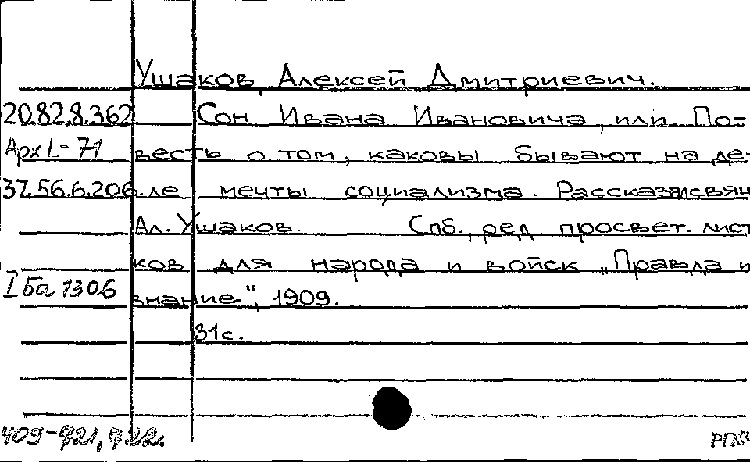 Ушаков, Алексей Дмитриевич.
20.82.8.362 Сон Ивана Ивановича, или По-
Арх I-71 весть о том, каковы бывают на де-
37.56.6.206 ле мечты социализма. Рассказ свящ
Ал. Ушаков. Спб., ред просвет. лист
ков для народа и войск „Правда и
I Ба 1306 знание", 1909.
31с.
409-921, 922.